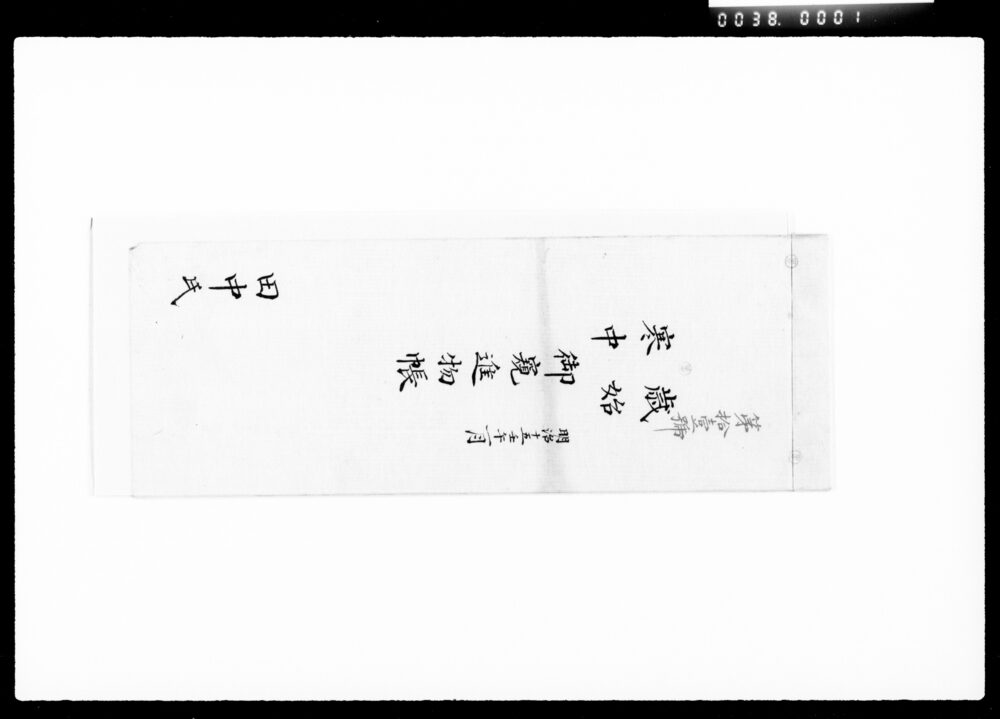 0038. 0001
第拾壹號
明治十五年一月
歳始
寒中
御窺進物帳
田中氏